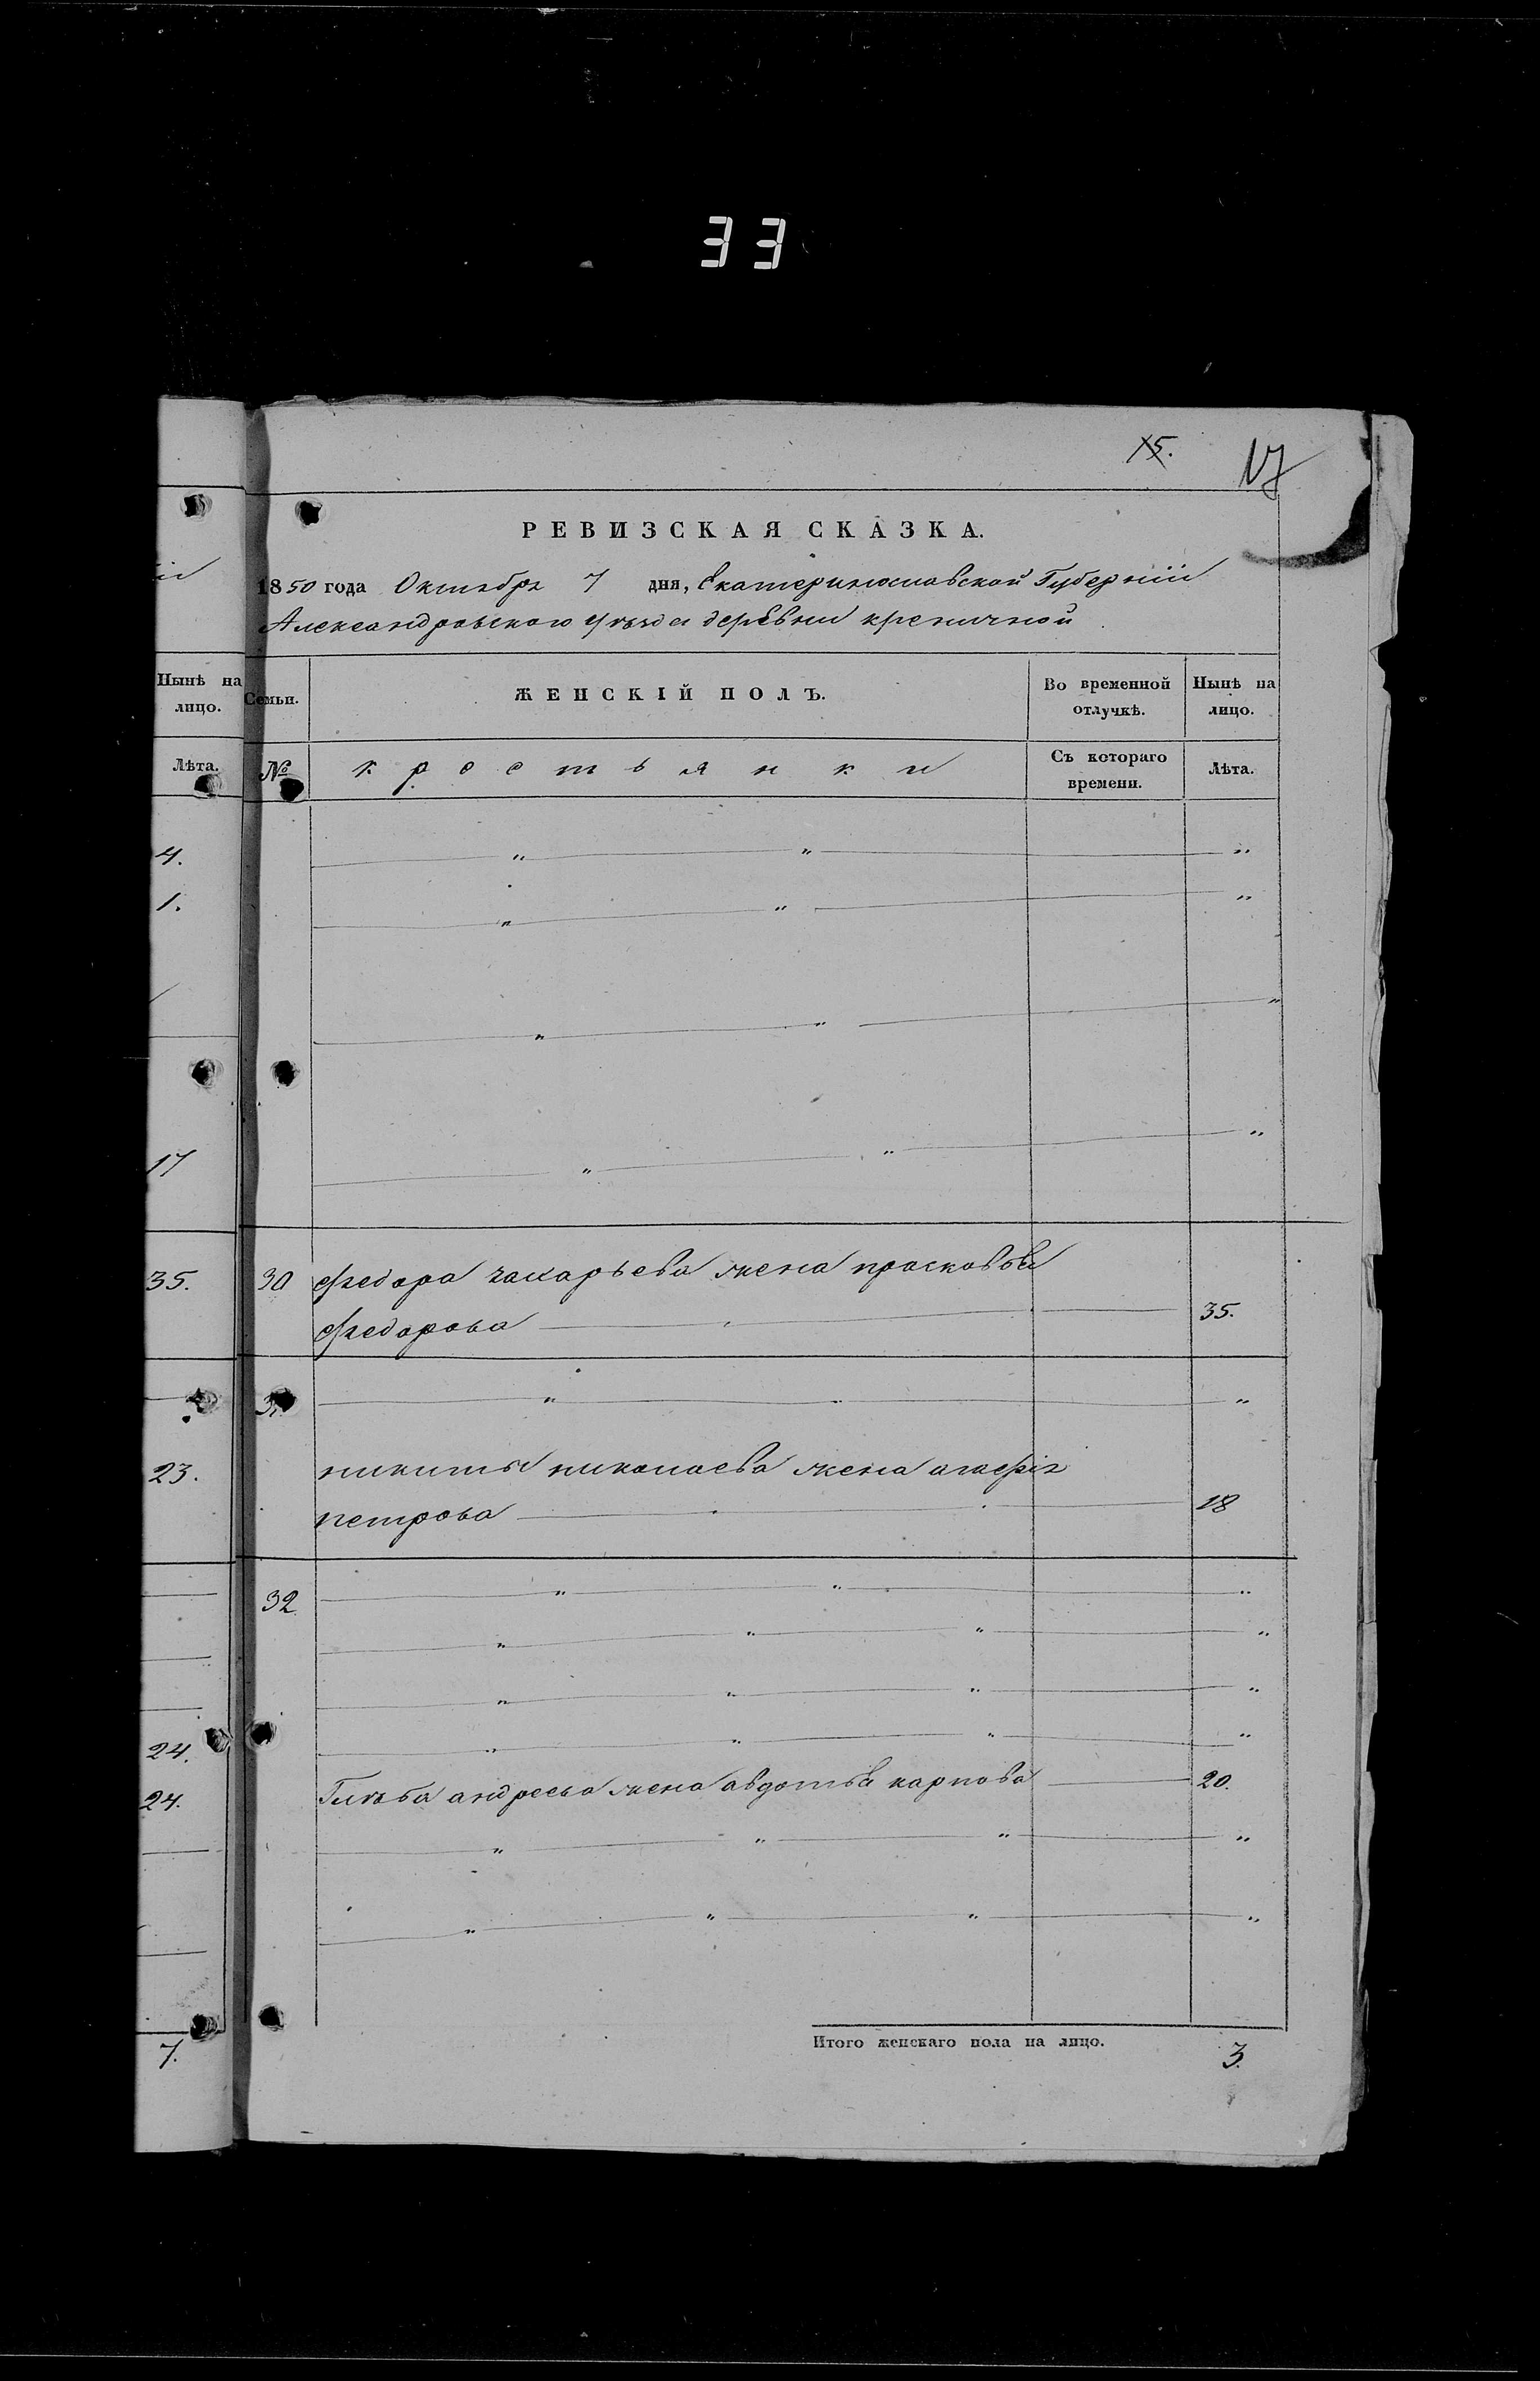 33
15.
17
РЕВИЗСКАЯ СКАЗКА.
1850 года Октября 7 дня, Екатеринославской Губерніи
Александровского уѣзда деревни креничной
Нынѣ на лицо.
Семьи.
ЖЕНСКІЙ ПОЛЪ.
Во временной отлучкѣ.
Нынѣ на лицо.
Лѣта.
№
крестьянки
Съ котораго времени.
Лѣта.
4.
1.
17
35.
30 Федора захарьева жена прасковья
Федорова 35.
31.
23.
никиты николаева жена агафія
петрова 18
32
24.
24.
Глѣба андреева жена авдотья карпова 20.
7.
Итого женскаго пола на лицо. 3.